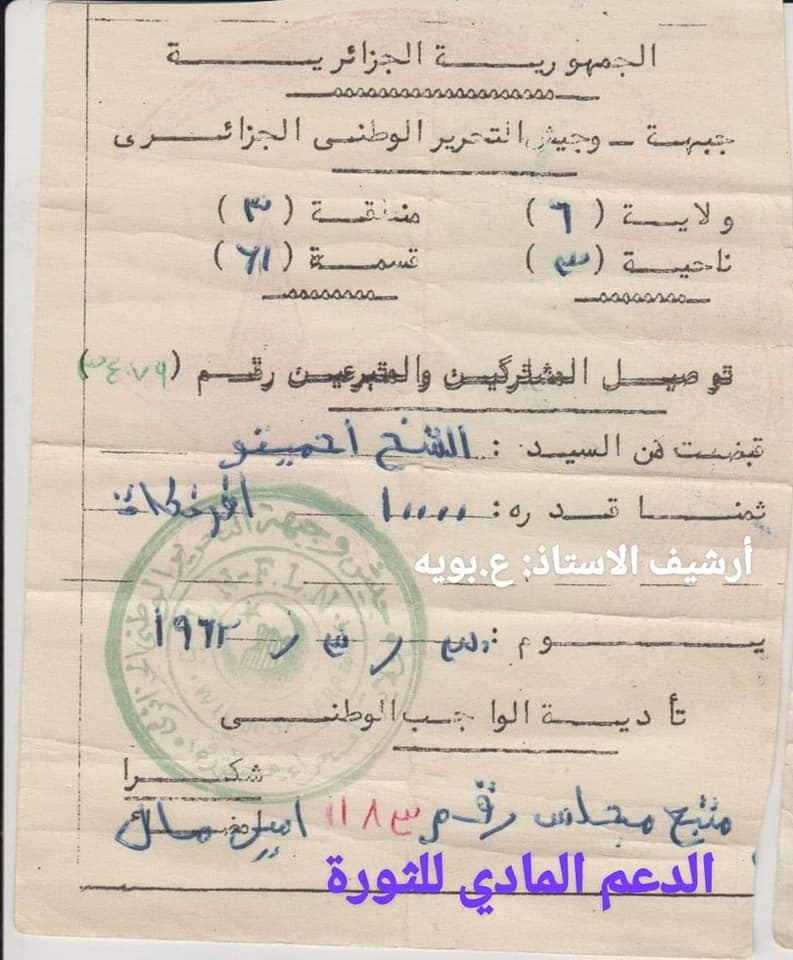 الجمهورية الجزائرية
جبهة - وجيش التحرير الوطني الجزائرى
ولاية (٦) منطقة (٣)
ناحية (٣) قسمة (٦١)
توصيل المشتركين والمتبرعين رقم (٣٤٠٧٩)
قبضت من السيد : الشيخ احميتو
ثمنا قدره : ١٠٠٠٠ افرنكات
أرشيف الاستاذ: ع.بويه
F.L.N.
يوم : ٣٠ ر ٣ ر ١٩٦٢
تأدية الواجب الوطنى
شكرا
منبع مجلس رقم ١١٨٣
الدعم المادي للثورة